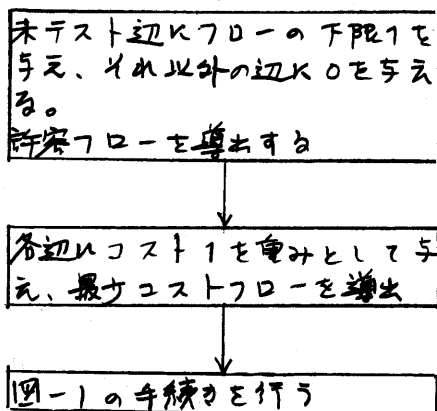 未テスト辺にフローの下限1を
与え、それ以外の辺に0を与え
る。
許容フローを導出する
各辺にコスト1を重みとして与
え、最少コストフローを導出
図-1の手続きを行う